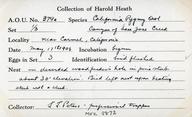 Collection of Harold Heath
A.O.U. No. 379a Species California Pygmy Owl
Set 1/3 Canyon of San Jose Creek
Locality near Carmel, California
Date May 11, Incubation begun
Eggs in Set 3 Identification bird flushed
Nest in deserted woodpecker's hole in pine stub
about 30' elevation. Bird left nest upon beating
stub with a club.
Collector J. S. Peters - professional trapper
MVZ 5872